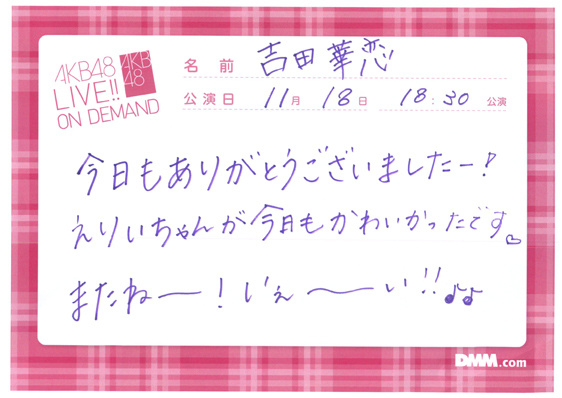 AKB48
LIVE!!
ON DEMAND
AKB
48
名前 吉田華恋
公演日 11月 18日 18:30 公演
今日もありがとうございましたー!
えりいちゃんが今日もかわいかったです♡
またねー!いぇーい!!♪♪
DMM.com